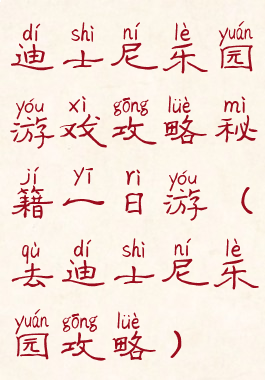 dí shì ní lè yuán
迪士尼乐园
yóu xì gōng lüè mì
游戏攻略秘
jí yī rì yóu
籍一日游（
qù dí shì ní lè
去迪士尼乐
yuán gōng lüè
园攻略）